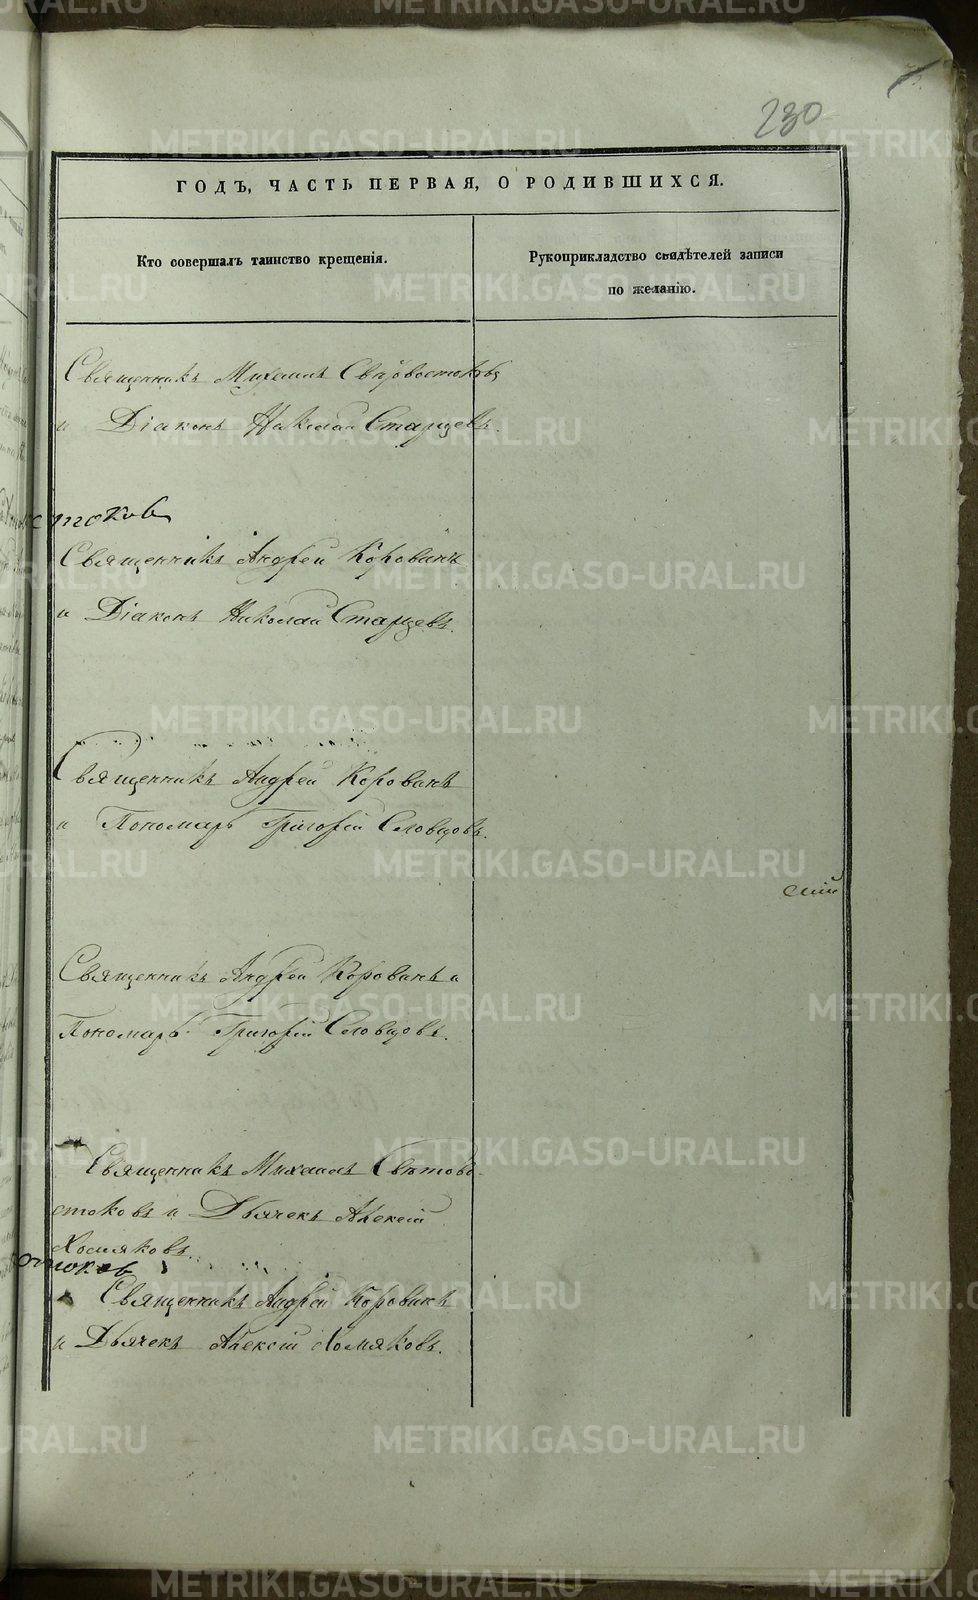 230
ГОДЪ, ЧАСТЬ ПЕРВАЯ, О РОДИВШИХСЯ.
Кто совершалъ таинство крещенія.
Рукоприкладство свидѣтелей записи
по желанію.
Священникъ Михаилъ Свѣтовостоковъ
и Діаконъ Николай Старцевъ.
стоков
Священникъ Андрей Коровинъ
и Діаконъ Николай Старцевъ.
Священникъ Андрей Коровинъ
и Пономарь Григорій Словцовъ.
сий
Священникъ Андрей Коровинъ и
Пономарь Григорій Словцовъ.
Священникъ Михаилъ Свѣтово-
стоковъ и Дьячекъ Алексій
Хомяковъ.
стоков
Священникъ Андрей Коровинъ
и Дьячекъ Алексій Хомяковъ.
METRIKI.GASO-URAL.RU